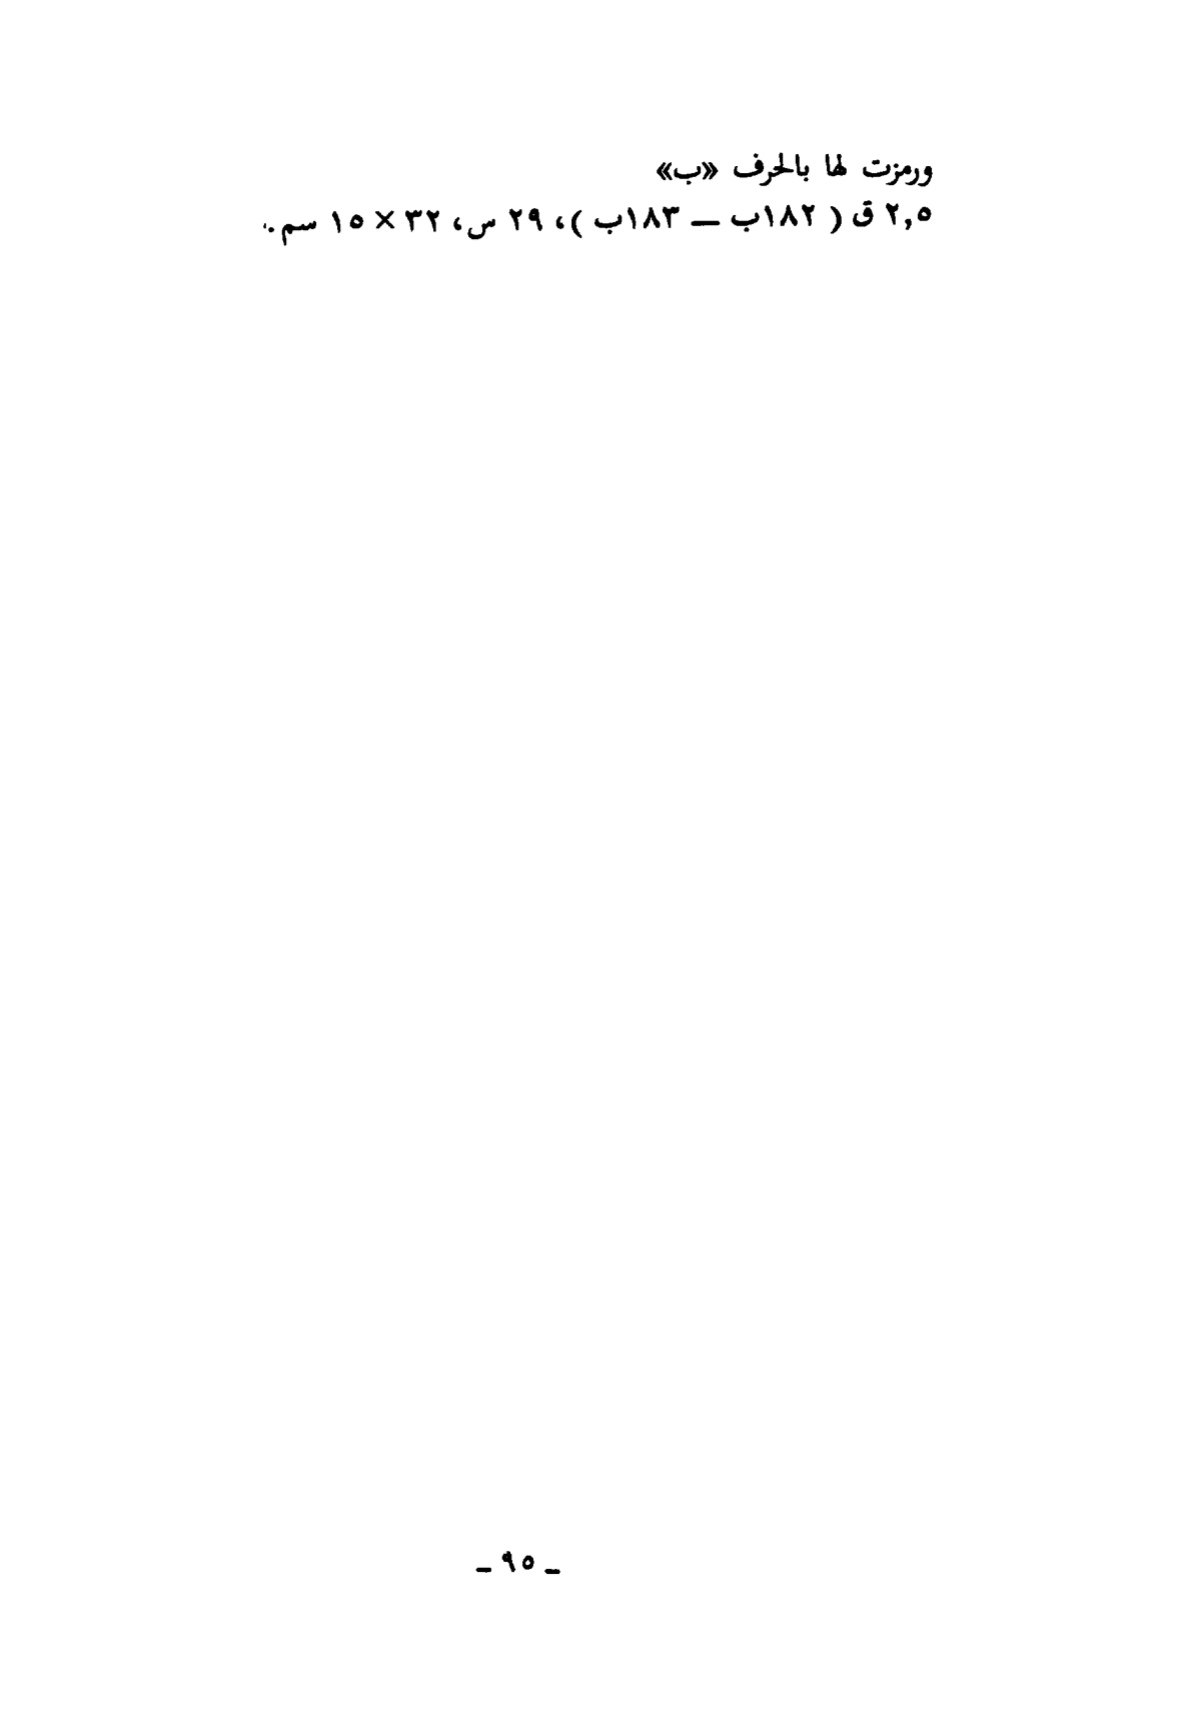 ورمزت لها بالحرف «ب»
٢,٥ ق ( ١٨٢ب ـــ ١٨٣ب )، ٢٩ س، ٣٢ × ١٥ سم.
ـ ٩٥ ـ